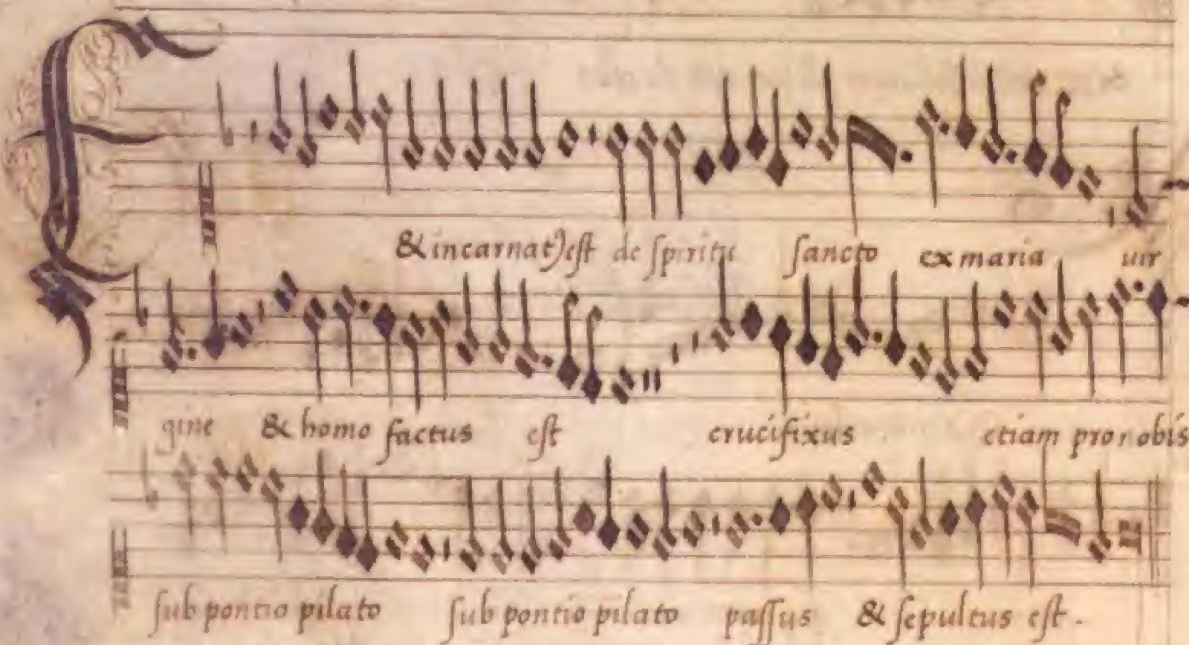 E
& incarnatꝰ est de spiritu sancto ex maria uir
gine & homo factus est crucifixus etiam pro nobis
sub pontio pilato sub pontio pilato passus & sepultus est.